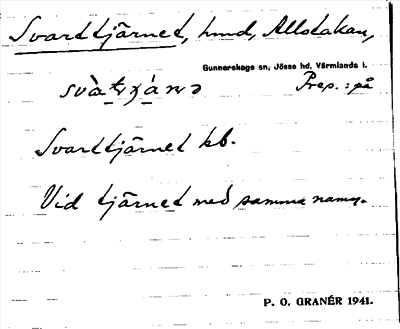 Svarttjärnet, hmd, Allstakan,
Gunnarskogs sn, Jösse hd, Värmlands l.
Prep.: på
Svarttjärnet kb.
Vid tjärnet med samma namn.
P. O. GRANÉR 1941.